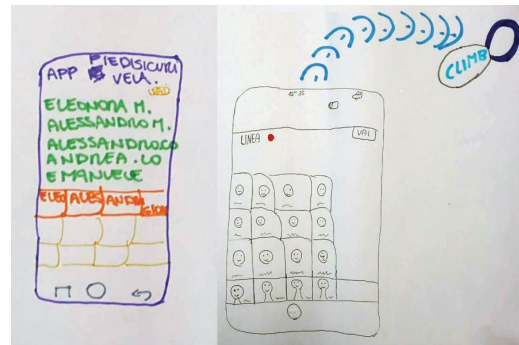 APP PIEDISICURI
VELA.
ELEONORA M.
ALESSANDRO M.
ALESSANDRO.CO
ANDREA.CO
EMANUELE
ELEO ALES ANDR
LINEA VAI
CLIMB